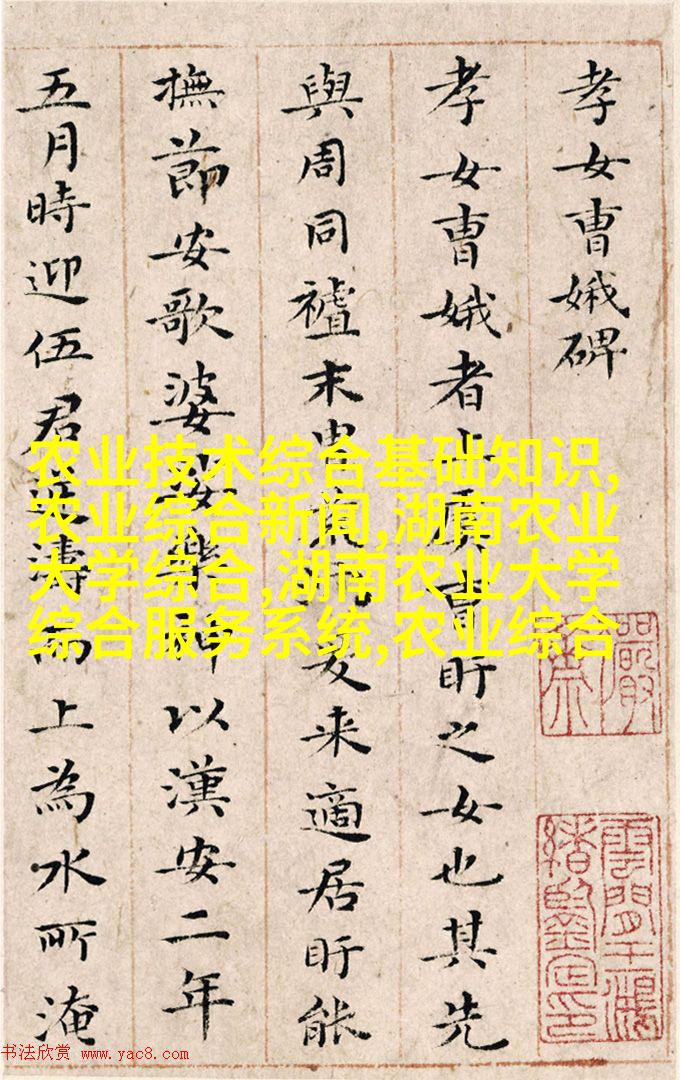 孝女曺娥碑
孝女曺娥者上虞曺盱之女也其先
與周同末胄荒爰来適居盱能
撫節安歌婆娑樂神以漢安二年
五月時迎伍君逆濤而上為水所淹
农业技术综合基础知识,
农业综合新闻,湖南农业
大学综合,湖南农业大学
综合服务系统,农业综合
雲間王鴻
緒鑒定印
书法欣赏 www.yac8.com